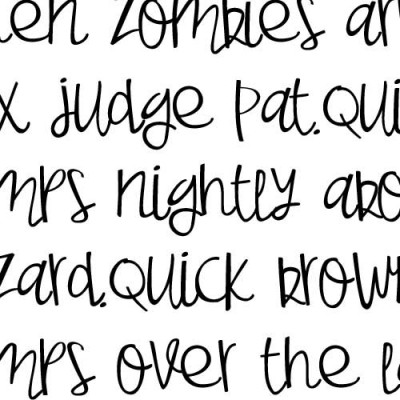 en zombies ar
x judge pat.Qui
mps nightly abo
zard.Quick brown
mps over the l